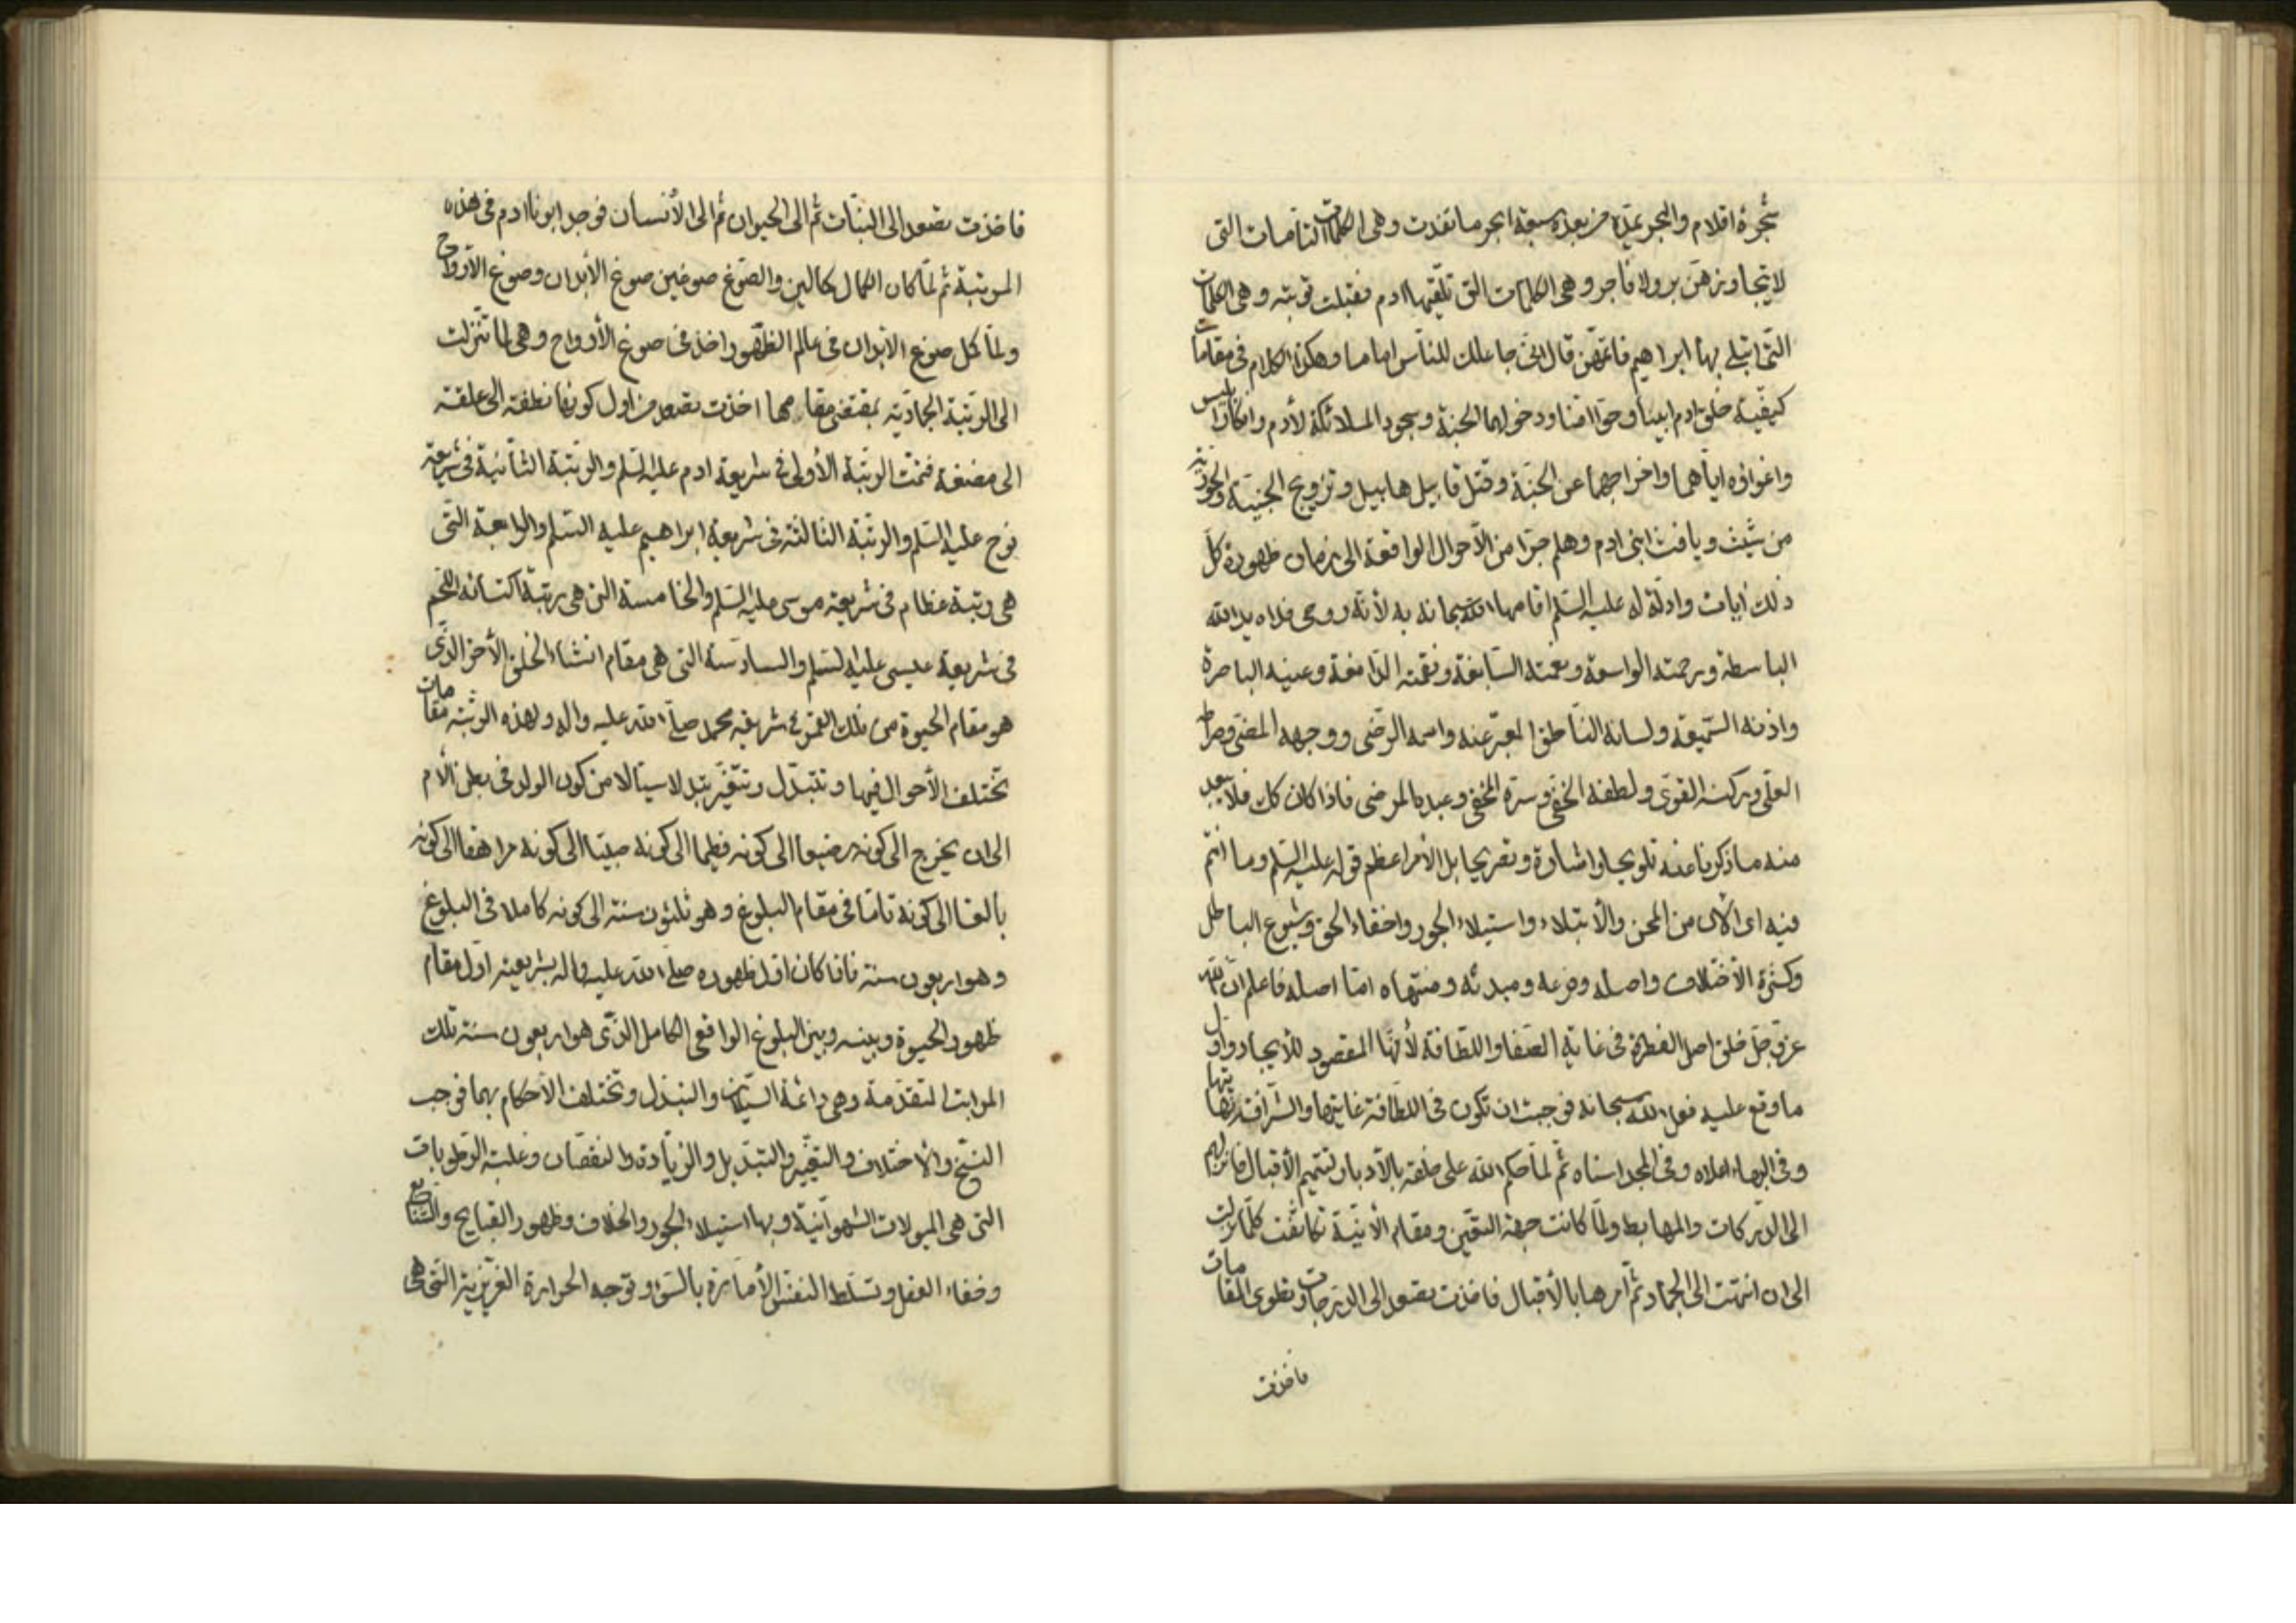 شجرة اقلام والبحر يمدّه من بعده سبعة ابحر ما نفدت وهى الكلمات التامات التى
لا يتجاوزهنّ بر ولا فاجر وهى الكلمات التى تلقّيها ادم فقبلت توبته وهى الكلمات
التى ابتلى بها ابراهيم فاتمّهنّ قال انى جاعلك للناس اماما وهكذا الكلام فى مقامات
كيفيّة خلق ادم ابينا وحوّا امّنا ودخولهما الجنة وسجود الملائكة لأدم وانكار ابليس
واغواؤه اياهما واخراجهما عن الجنّة وقتل قابيل هابيل وتزويج الجنيّة والحوريّة
من شيث ويافث ابنى ادم وهلم جرّا من الأحوال الواقعة الى زمان ظهوره كلّ
ذلك ايات وادلّة له عليه السّلم اقامها الله سبحانه به لأنّه روحى فداه يد الله
الباسطة ورحمته الواسعة ونعمته السّابغة ونقمته الدّامغة وعينه الباصرة
واذنه السّميعة ولسانه النّاطق المعبّر عنه واسمه الرّضى ووجهه المضئ وصراطه
العلّى وركنه القوّى ولطفه الخفّى وسرّه المخفى وعبده المرضى فاذا كان كك فلا يبعد
منه ما ذكرنا عنه تلويحا واشارة وتصريحا بل الأمر اعظم قوله عليه السّلم وما انتم
فيه اى الأن من المحن والأبتلاء واستيلاء الجور واخفاء الحق وشيوع الباطل
وكثرة الأختلاف واصله وفرعه ومبدئه ومنتهاه امّا اصله فاعلم انّ الله
عزّ وجلّ خلق اصل الفطرة فى غاية الصّفا واللّطافة لأنّها المقصود للأيجاد واوّل
ما وقع عليه فعل الله سبحانه فوجبت ان تكون فى اللطافة غايتها والشّرافة نهايتها
وفى البهاء اعلاه وفى المجد اسناه ثمّ لمّا حكم الله على خلقه بالأدبار لتتميم الأقبال فانزلهم
الى الدّركات والمهابط ولمّا كانت جهة التعّين ومقام الأنيّة تكاثفت كلّما نزلت
الى ان انتهت الى الجماد ثمّ امرها بالأقبال فاخذت تصعد الى الدّرجات وتطوى المقامات
فاخذت
فاخذت تصعد الى النبّات ثمّ الى الحيوان ثمّ الى الأنسان فوجد ابونا ادم فى هذه
المرتبة ثم لمّا كان الكمال كمالين والصّوغ صوغين صوغ الأبدان وصوغ الأرواح
ولمّا كمل صوغ الابدان فى عالم الظّهور اخذ فى صوغ الأرواح وهى لمّا تنّزلت
الى الرتبة الجماديّة بمقتضى مقامها اخذت تصعد من اول كونها نطفة الى علقة
الى مضغة فتمّت الرتبة الأولى فى شريعة ادم عليه السّلم والرتبة الثّانية فى شريعة
نوح عليه السّلم والرتبة الثالثة فى شريعة ابراهيم عليه السّلم والرابعة التى
هى رتبة عظام فى شريعة موسى عليه السّلم والخامسة التى هى رتبة اكتسائه اللّحم
فى شريعة عيسى عليه السّلم والسادسة التى هى مقام انشاء الخلق الأخر الذّى
هو مقام الحيوة من تلك القوّة فى شريعة محمد صلّى الله عليه واله ولهذه الرتبة مقامات
تختلف الأحوال فيها وتتبدّل وتتغيّر تبدلا سيّالا من كون الولد فى بطن الأم
الى ان يخرج الى كونه رضيعا الى كونه فطيما الى كونه صبيّا الى كونه مراهقا الى كونه
بالغا الى كونه تامّا فى مقام البلوغ وهو ثلثون سنة الى كونه كاملا فى البلوغ
وهو اربعون سنة فاذا كان اوّل ظهوره صلّى الله عليه واله بشريعته اوّل مقام
ظهور الحيوة وبينه وبين البلوغ الواقعى الكامل الذّى هو اربعون سنة تلك
المراتب المتقدّمة وهى دائمة السّيلان والتبدّل وتختلف الأحكام بها فوجب
النسّخ والأختلاف والتغيّير والتبّديل والزيّادة والنقصان وغلبة الرطوبات
التى هى الميولات الشهوّانيّة وبها استيلاء الجور والخلاف وظهور القبايح والشّنايع
وخفاء العقل وتسلّط النفس الأمّارة بالسّوء وتوجه الحرارة الغريزية التى هى